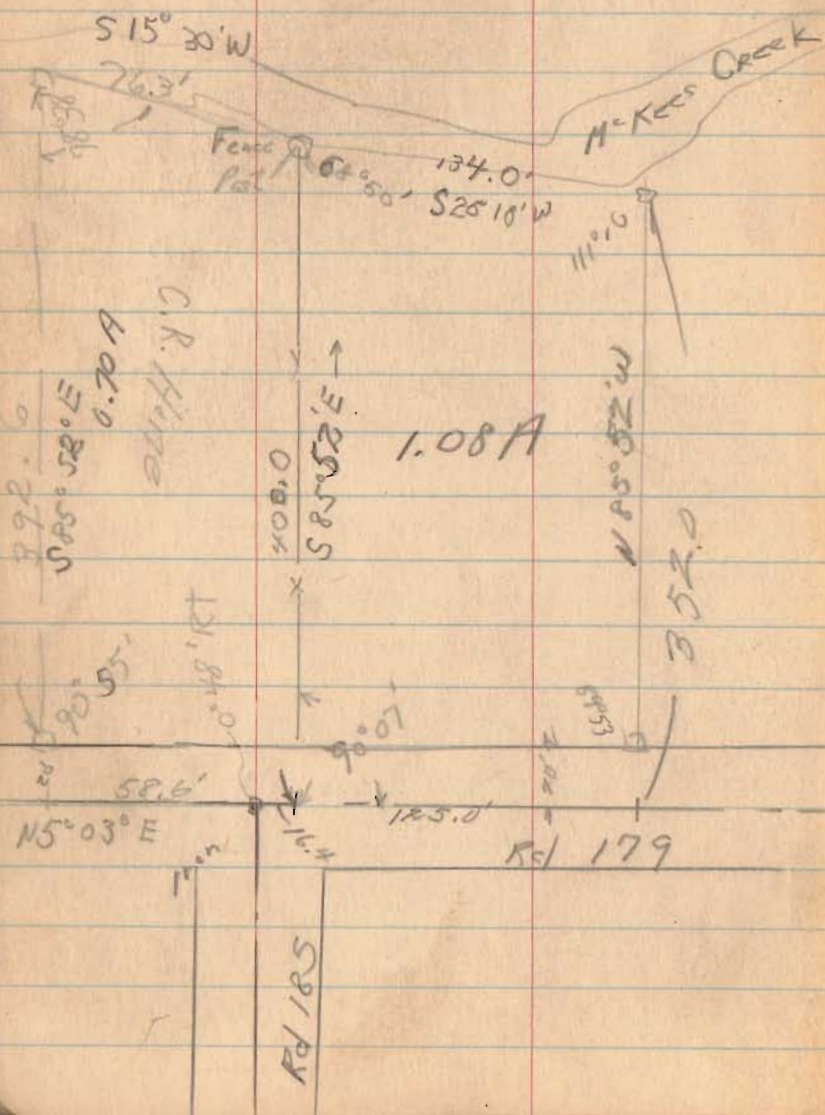 S 15° 30' W
76.3'
McKees Creek
Fence
Post
134.0'
S 25 18' W
111°10
S 85° 58° E
0.70 A
C.R. Hine
400.0
S 85° 52' E →
1.08 A
N 85° 52' W
352.0
392.6
90° 55'
0° 48' RT
90° 07'
20'
58.6'
N5° 03° E
16.4
125.0'
Rd 179
Iron
Rd 185